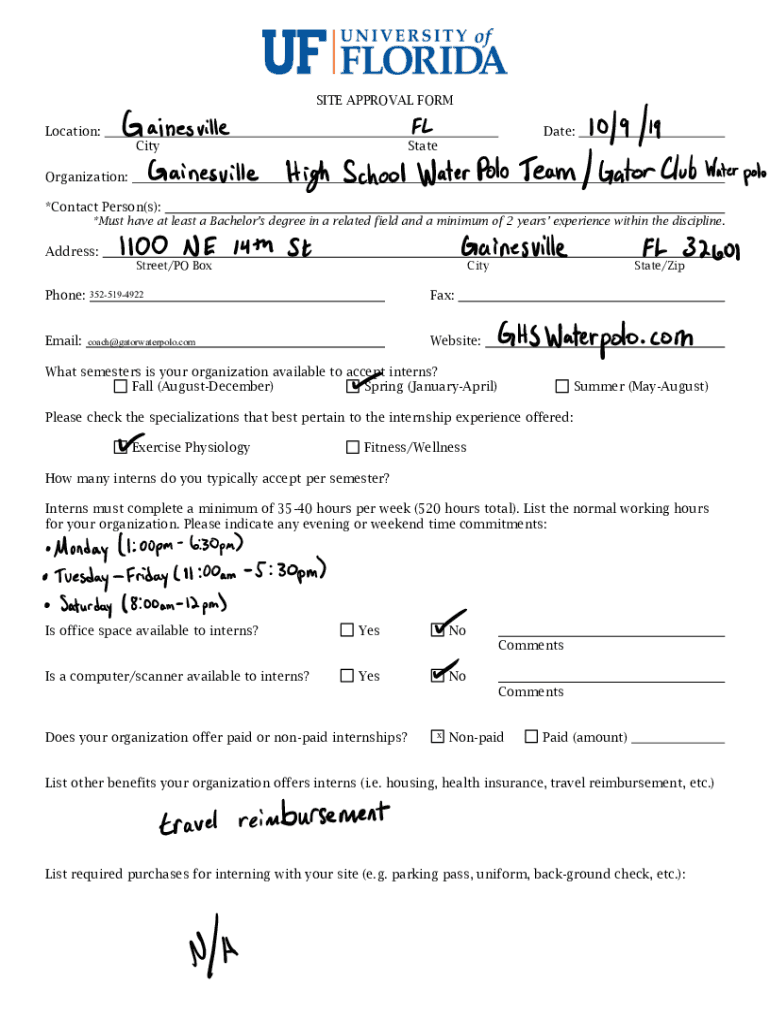 UF UNIVERSITY of
FLORIDA
SITE APPROVAL FORM
Location: Gainesville FL Date: 10/9/19
City State
Organization: Gainesville High School Water Polo Team / Gator Club Water polo
*Contact Person(s):
*Must have at least a Bachelor's degree in a related field and a minimum of 2 years' experience within the discipline.
Address: 1100 NE 14th St Gainesville FL 32601
Street/PO Box City State/Zip
Phone: 352-519-4922 Fax:
Email: coach@gatorwaterpolo.com Website: GHSWaterpolo.com
What semesters is your organization available to accept interns?
Fall (August-December) Spring (January-April) Summer (May-August)
Please check the specializations that best pertain to the internship experience offered:
Exercise Physiology Fitness/Wellness
How many interns do you typically accept per semester?
Interns must complete a minimum of 35-40 hours per week (520 hours total). List the normal working hours
for your organization. Please indicate any evening or weekend time commitments:
• Monday (1:00pm - 6:30pm)
• Tuesday - Friday (11:00am - 5:30pm)
• Saturday (8:00am - 12pm)
Is office space available to interns? Yes No
Comments
Is a computer/scanner available to interns? Yes No
Comments
Does your organization offer paid or non-paid internships? x Non-paid Paid (amount)
List other benefits your organization offers interns (i.e. housing, health insurance, travel reimbursement, etc.)
travel reimbursement
List required purchases for interning with your site (e.g. parking pass, uniform, back-ground check, etc.):
N/A